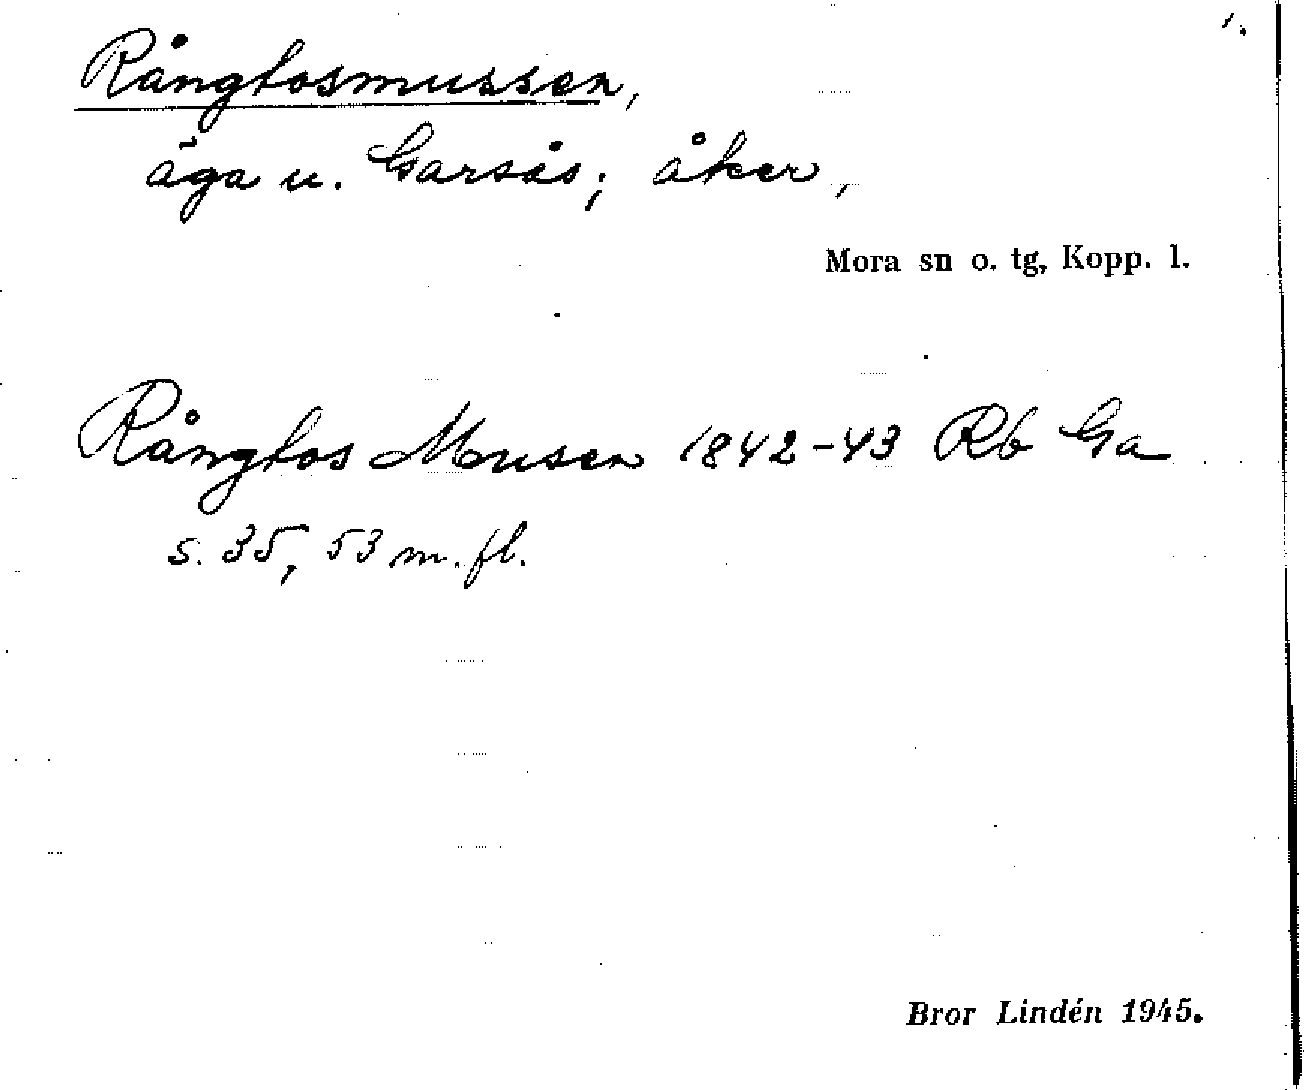 Rångtosmussen,
äga u. Garsås; åker,
Mora sn o. tg, Kopp. l.
Rångtos Musen 1842-43 Rb Ga
s. 35, 53 m. fl.
Bror Lindén 1945.